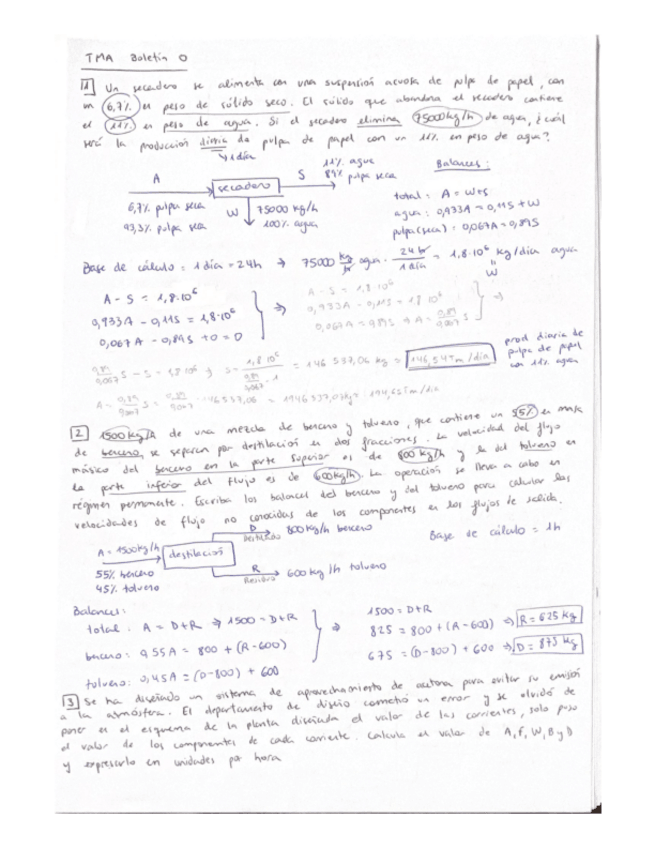 TMA Boletín 0
1 Un secadero se alimenta con una suspensión acuosa de pulpa de papel, con
un 6,7% en peso de sólido seco. El sólido que abandona el secadero contiene
el 11% en peso de agua. Si el secadero elimina 75000kg/h de agua, ¿cuál
será la producción diaria de pulpa de papel con un 11% en peso de agua?
1 día
A
secadero
S
11% agua
89% pulpa seca
6,7% pulpa seca
93,3% pulpa seca
W
75000 kg/h
100% agua
Balances:
total: A = W+S
agua: 0,933A = 0,11S + W
pulpa(seca): 0,067A = 0,89S
Base de cálculo: 1 día = 24h → 75000 kg/hr agua · 24 hr/1 día = 1,8·10⁶ kg/día agua
W
A - S = 1,8·10⁶
0,933A - 0,11S = 1,8·10⁶
0,067A - 0,89S + 0 = 0
A - S = 1,8·10⁶
0,933A - 0,11S = 1,8·10⁶
= 146 537,06 kg = 146,54 Tm/día
prod diaria de
pulpa de papel
con 11% agua
2 1500kg/h de una mezcla de benceno y tolueno, que contiene un 55% en masa
de benceno, se separan por destilación en dos fracciones. La velocidad del flujo
másico del benceno en la parte superior es de 800 kg/h y la del tolueno en
la parte inferior del flujo es de 600kg/h. La operación se lleva a cabo en
régimen permanente. Escriba los balances del benceno y del tolueno para calcular las
velocidades de flujo no conocidas de los componentes en los flujos de salida.
A = 1500kg/h
55% benceno
45% tolueno
destilación
D
Destilado
800kg/h benceno
R
Residuo
600kg/h tolueno
Base de cálculo = 1h
Balances:
total: A = D+R → 1500 = D+R
benceno: 0,55A = 800 + (R-600)
tolueno: 0,45A = (D-800) + 600
1500 = D+R
825 = 800 + (R-600) → R = 625 kg
675 = (D-800) + 600 → D = 875 kg
3 Se ha diseñado un sistema de aprovechamiento de acetona para evitar su emisión
a la atmósfera. El departamento de diseño cometió un error y se olvidó de
poner en el esquema de la planta diseñada el valor de las corrientes, solo puso
el valor de los componentes de cada corriente. Calcula el valor de A, F, W, B y D
y expresarlo en unidades por hora